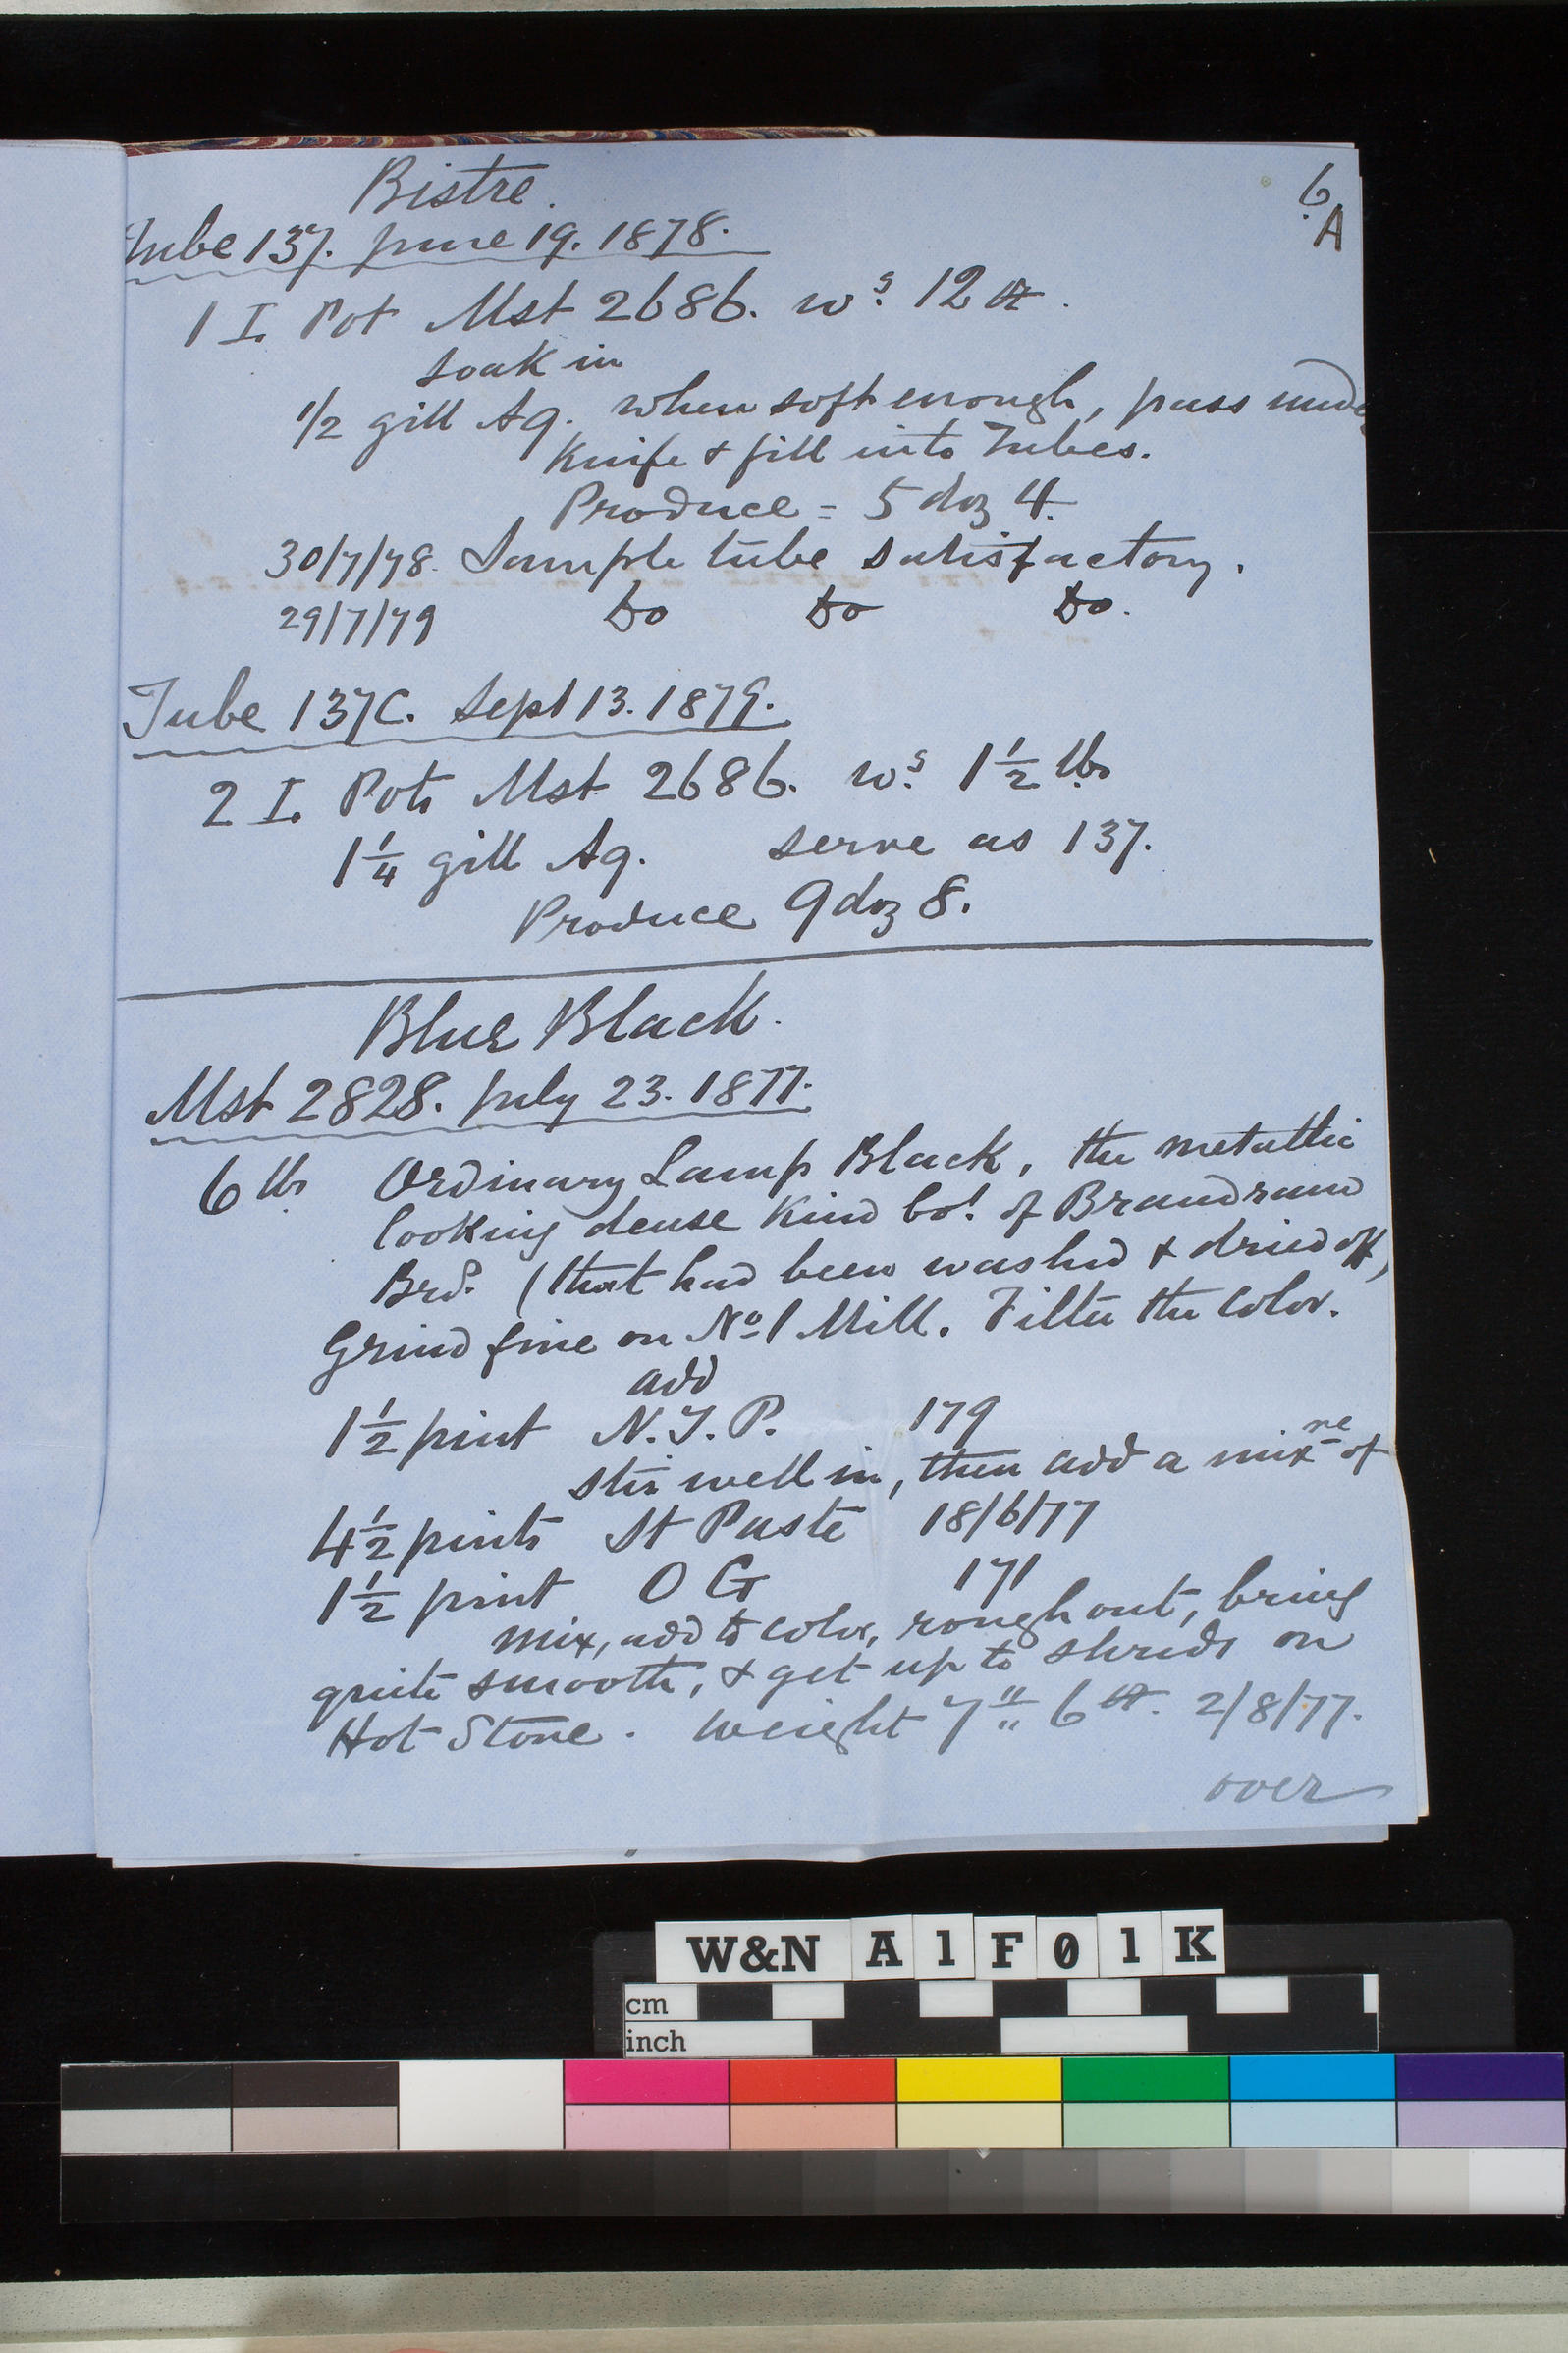 6
A
Bistre.
Tube 137. June 19. 1878.
1 I. Pot Mst 2686. wˢ. 12 oz.
soak in
1/2 gill Aq. when soft enough, pass under
Knife & fill into Tubes.
Produce = 5 doz 4.
30/7/78. Sample tube satisfactory.
29/7/79 Do Do Do.
Tube 137C. Sept 13. 1879.
2 I. Pots Mst 2686. wˢ. 1 1/2 lbs
1 1/4 gill Aq. serve as 137.
Produce 9 doz 8.
Blue Black.
Mst 2828. July 23. 1877.
6 lbs Ordinary Lamp Black, the metallic
looking dense Kind bot. of Brandram
Brs. (that had been washed & dried off)
Grind fine on Nº 1 Mill. Filter the Color.
add
1 1/2 pint N.T.P. 179
stir well in, then add a mixʳᵉ of
4 1/2 pints St Paste 18/6/77
1 1/2 pint O G 171
mix, add to color, rough out, bring
quite smooth, & get up to shreds on
Hot Stone. Weight 7 " 6 oz. 2/8/77.
over
W&N A1F01K
cm
inch